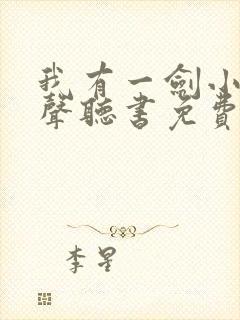 我有一劍小
聲聽書免費
李星